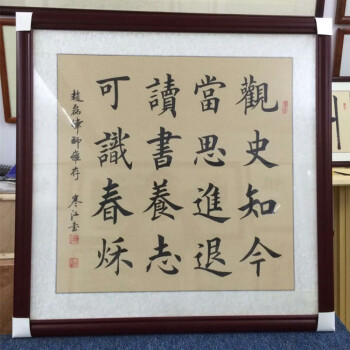 觀史知今
當思進退
讀書養志
可識春秌
趙磊律師雅存 寒江書